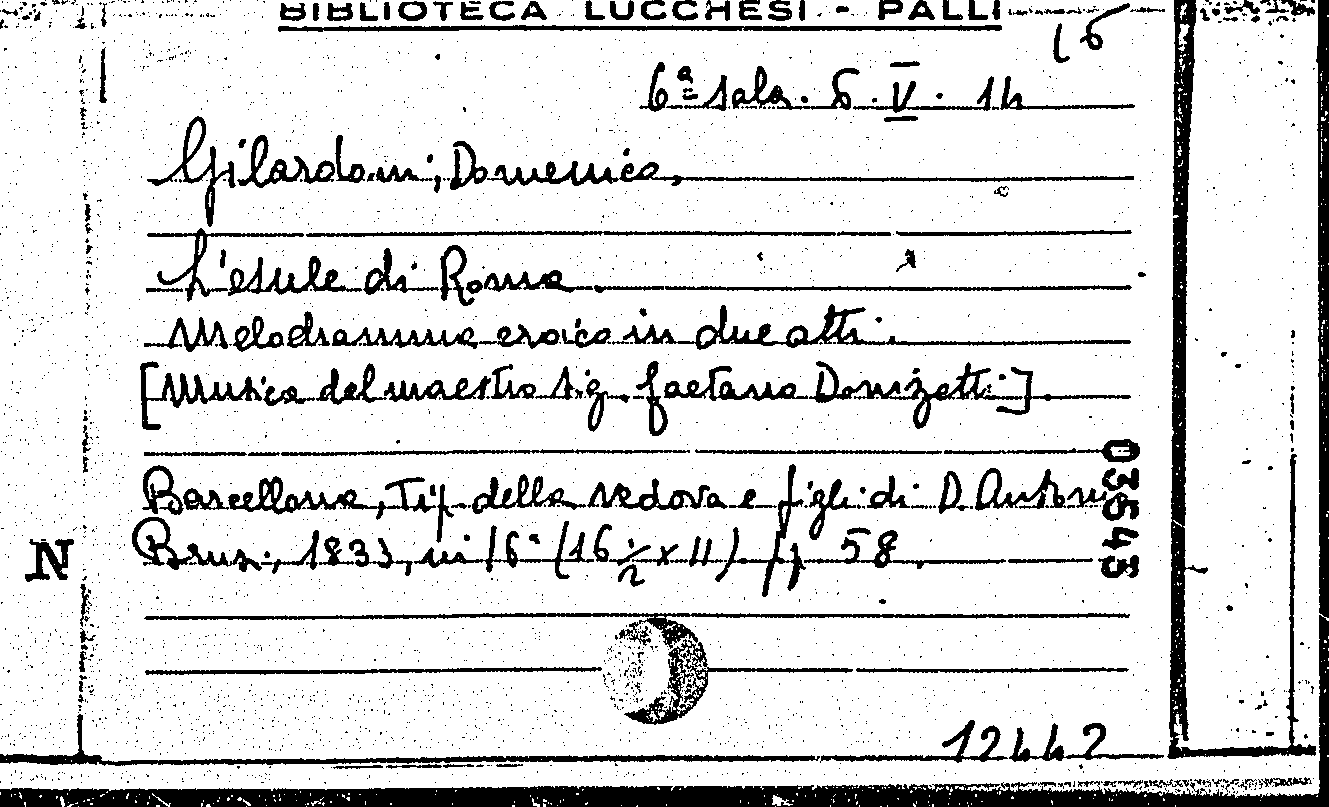 BIBLIOTECA LUCCHESI - PALLI
16
6ª sala. 6. V. 14
Gilardoni, Domenico,
L'esule di Roma.
Melodramma eroico in due atti.
[Musica del maestro sig. Gaetano Donizetti].
Barcellona, Tip. della vedova e figli di D. Antonio
Brusi, 1833, in 16° (16 1/2 x 11) pp. 58.
03543
N
12442